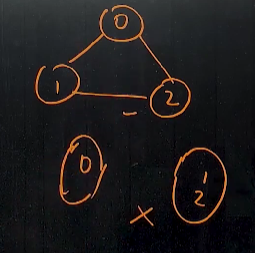 0
1 2
0 1
2
×